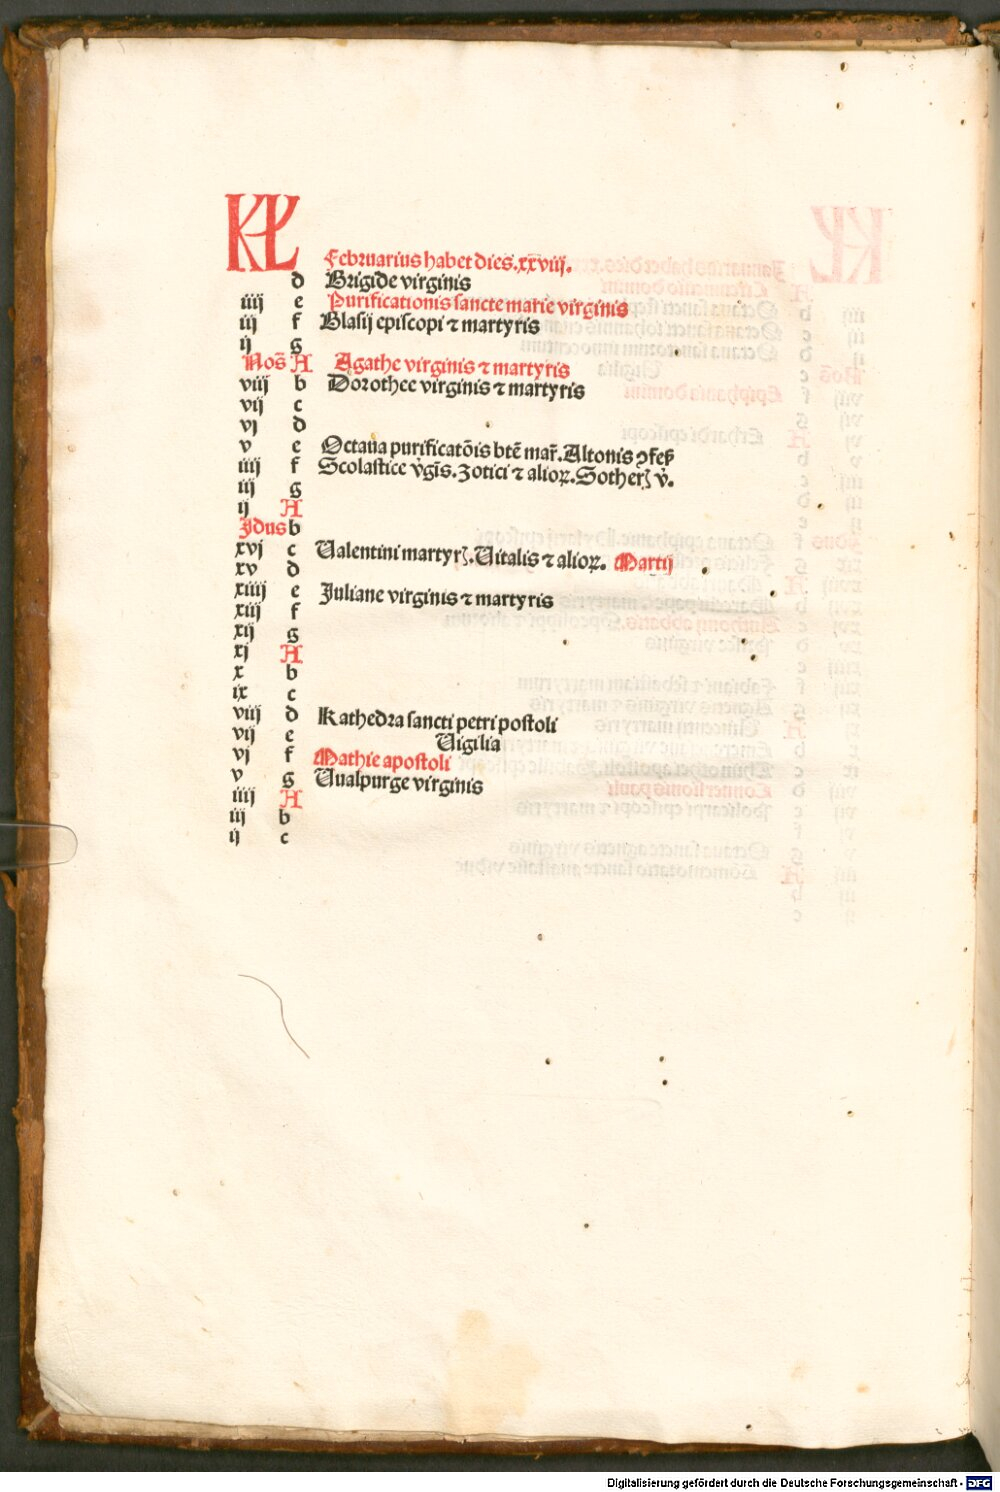 KL
Februarius habet dies.xxviij.
d Brigide virginis
iiij e Purificationis sancte marie virginis
iij f Blasij episcopi ⁊ martyris
ij g
Noñ A Agathe virginis ⁊ martyris
viij b Dorothee virginis ⁊ martyris
vij c
vj d
v e Octaua purificatōis btē mar̄.Altonis ꝯfeſſ
iiij f Scolastice v̄gīs.Zotici ⁊ alioꝝ.Sother v̄.
iij g
ij A
Jdus b
xvj c Ualentini martyr.Uitalis ⁊ alioꝝ. Martij
xv d
xiiij e Juliane virginis ⁊ martyris
xiij f
xij g
xj A
x b
ix c
viij d Kathedra sancti petri postoli
vij e Uigilia
vj f Mathie apostoli
v g Ualpurge virginis
iiij A
iij b
ij c
Digitalisierung gefördert durch die Deutsche Forschungsgemeinschaft - DFG